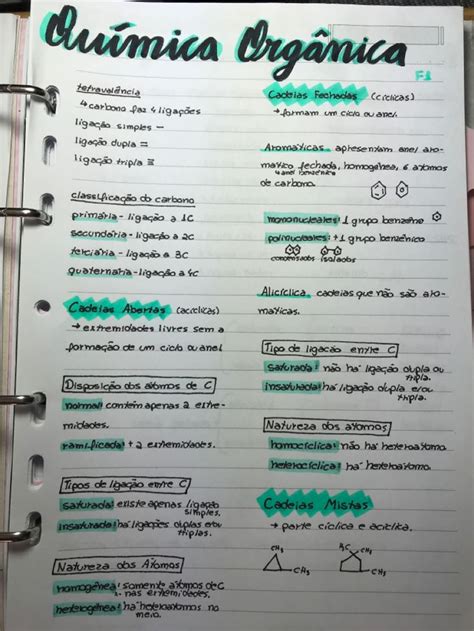 Química Orgânica
F1
tetravalência
↳ carbono faz 4 ligações
ligação simples −
ligação dupla =
ligação tripla ≡
classificação do carbono
primária - ligação a 1C
secundária - ligação a 2C
terciária - ligação a 3C
quaternária - ligação a 4C
Cadeias Abertas (acíclicas)
→ extremidades livres sem a
formação de um ciclo ou anel
Disposição dos átomos de C
normal: contém apenas 2 extre-
midades.
ramificada: + 2 extremidades.
Tipos de ligação entre C
saturada: existe apenas ligação
simples.
insaturada: há ligações duplas e/ou
triplas.
Natureza dos Átomos
homogênea: somente átomos de C
nas extremidades.
heterogênea: há heteroátomos no
meio.
Cadeias Fechadas (cíclicas)
→ formam um ciclo ou anel
Aromáticas apresentam anel aro-
mático fechado, homogênea, 6 átomos
↳ anel benzênico
de carbono.
mononucleares: 1 grupo benzênico
polinucleares: +1 grupo benzênico
condensados isolados
Alicíclica cadeias que não são aro-
máticas.
Tipo de ligação entre C
saturada: não há ligação dupla ou
tripla.
insaturada: há ligação dupla e/ou
tripla.
Natureza dos átomos
homocíclica: não há heteroátomo
heterocíclica: há heteroátomo.
Cadeias Mistas
→ parte cíclica e acíclica.
CH₃
H₃C
CH₃